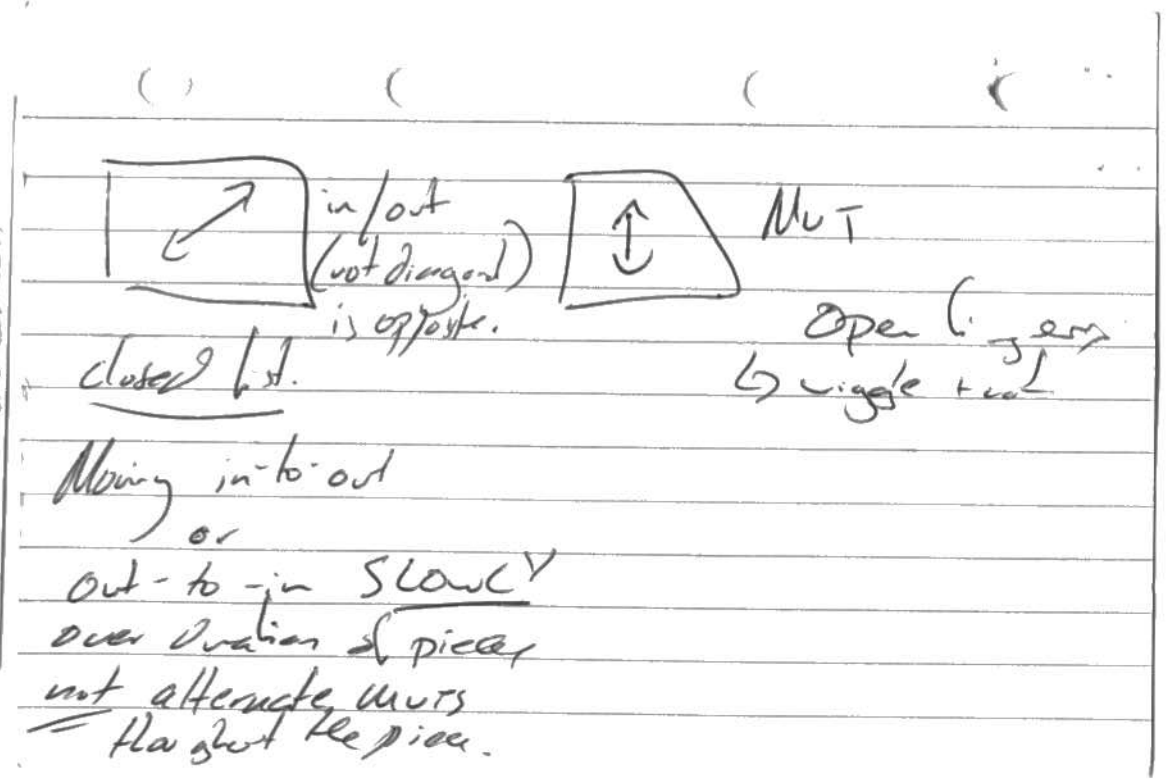 in/out
(not diagonal)
is opposite.
MUT
Open
↳ wiggle
closed fist.
Moving in-to-out
or
out-to-in SLOWLY
over duration of piece,
not alternate MUTS
throughout the piece.